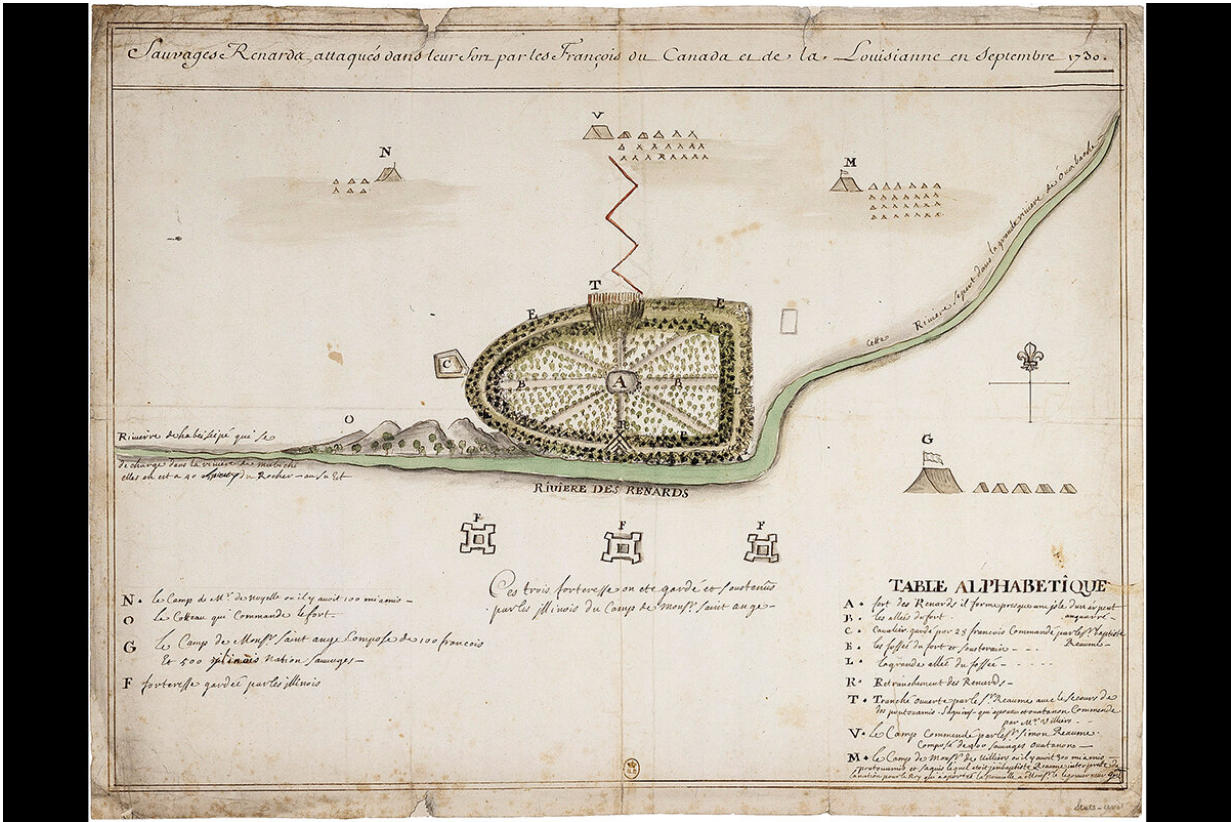 Sauvages Renards attaqués dans leur fort par les François du Canada et de la Louisianne en Septembre 1730.
V
N
M
cette Riviere se pert dans la grande riviere de Ouabache
T
E
E
L
C
A
B
B
O
Rivierre qui se
décharge dans la riviere de
elles en est a 40 du Rocher au Su Est
G
RIVIERE DES RENARDS
F
F
F
Ces trois forteresse on eté gardé et soustenüs
par les jllinois du Camp de Monsr. Saint ange
N. le Camp de Mr. de Noyelle ou il y avoit 100 miamis
O le Coteau qui Commande le fort
G le Camp de Monsr. Saint ange Composé de 100 francois
Et 500 Nation Sauvages
F forteresse gardée par les jllinois
TABLE ALPHABETIQUE
A. fort des Renards il forme presque une jsle d'un arpent
en quarré
B. les allées du fort
C. Cavalier gardé par 28 francois Commandé par le Sr. baptiste
Reaume
E. les fossés du fort et sousterain
L. la grande allée du fossée
R. Retranchement des Renards
T. Tranché ouverte par le Sr. Reaume avec le secours de
des poutouamis et ouatanon Commende
par Mr. Villiers
V. le Camp Commendé par le Sr. Simon Reaume
Composé de 400 Sauvages ouatanons
M. le Camp de Monsr. de Villiers ou il y avoit 300 miamis
poutouamis et Saquis lequel etoit jnbaptiste Reaume interprete de
la nation pour le Roy qui a aporté la nouvelle a Monsr. le gouverneur